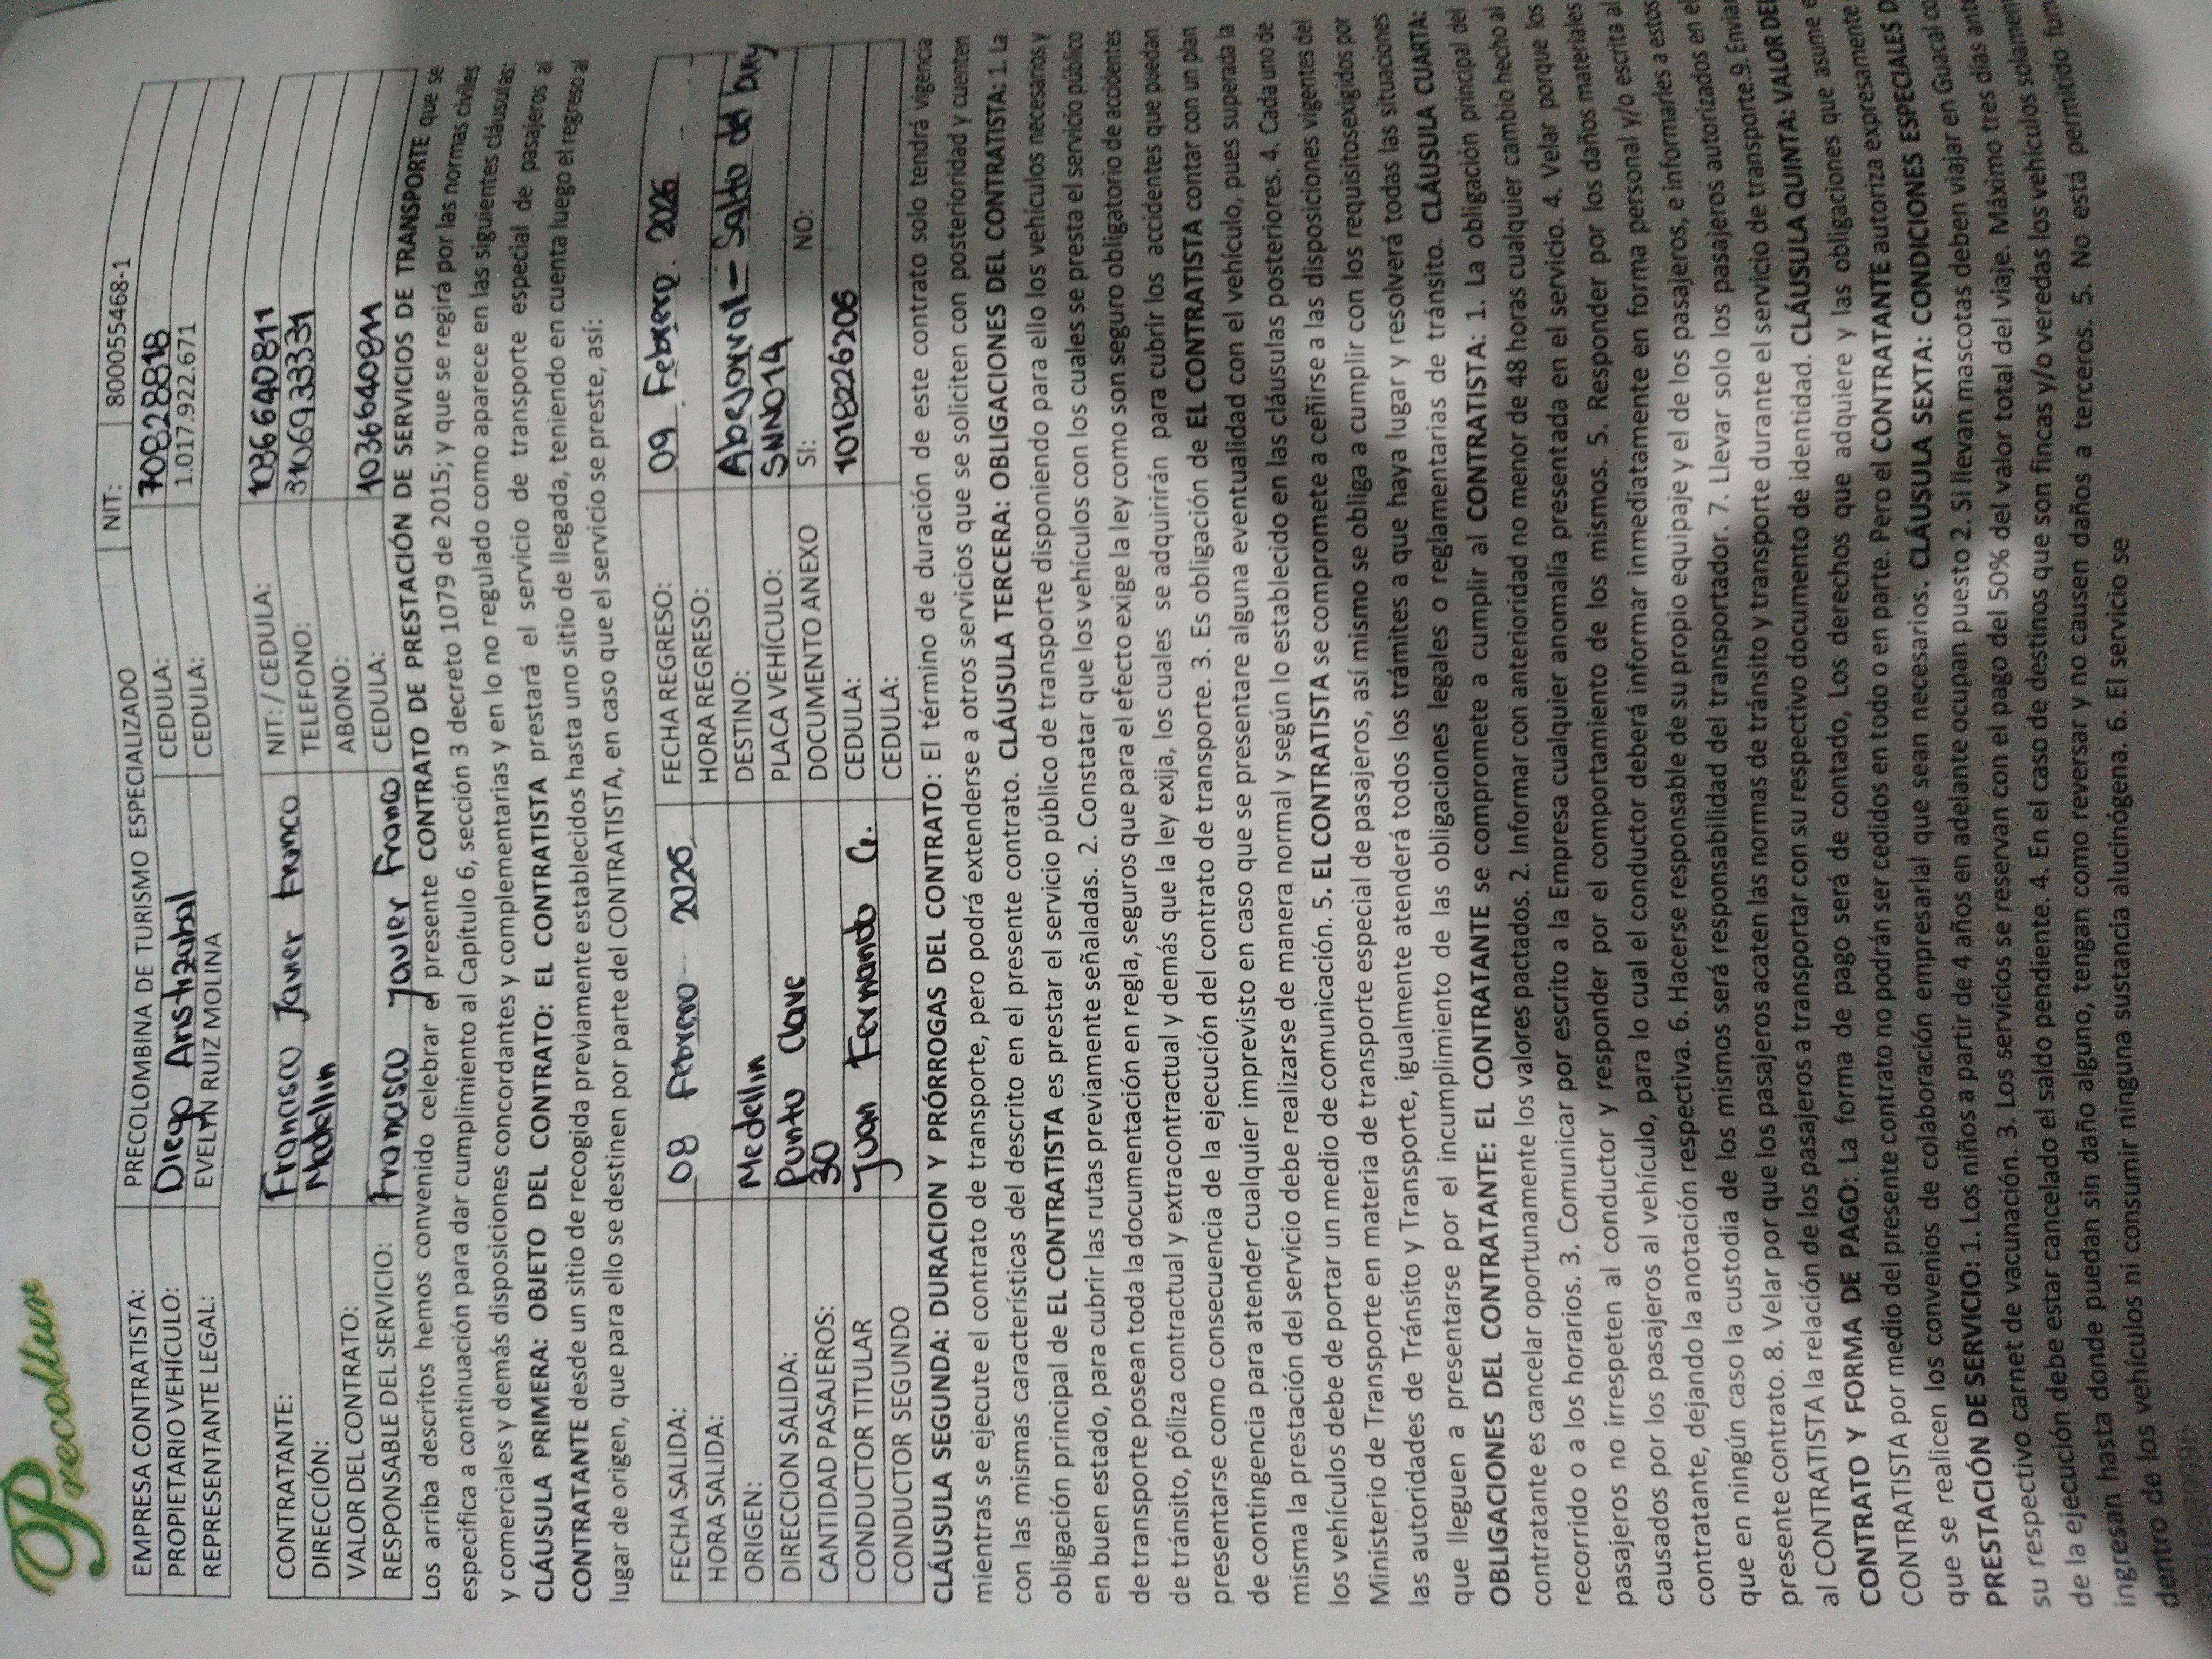 Precoltur
EMPRESA CONTRATISTA: PRECOLOMBINA DE TURISMO ESPECIALIZADO NIT: 800055468-1
PROPIETARIO VEHÍCULO: Diego Aristizabal CEDULA: 70828818
REPRESENTANTE LEGAL: EVELYN RUIZ MOLINA CEDULA: 1.017.922.671
CONTRATANTE: Francisco Javier Franco NIT: / CEDULA: 1036640811
DIRECCIÓN: Medellin TELEFONO: 3106933331
VALOR DEL CONTRATO: ABONO:
RESPONSABLE DEL SERVICIO: Francisco Javier Franco CEDULA: 1036640811
Los arriba descritos hemos convenido celebrar el presente CONTRATO DE PRESTACIÓN DE SERVICIOS DE TRANSPORTE que se
especifica a continuación para dar cumplimiento al Capítulo 6, sección 3 decreto 1079 de 2015; y que se regirá por las normas civiles
y comerciales y demás disposiciones concordantes y complementarias y en lo no regulado como aparece en las siguientes cláusulas:
CLÁUSULA PRIMERA: OBJETO DEL CONTRATO: EL CONTRATISTA prestará el servicio de transporte especial de pasajeros al
CONTRATANTE desde un sitio de recogida previamente establecidos hasta uno sitio de llegada, teniendo en cuenta luego el regreso al
lugar de origen, que para ello se destinen por parte del CONTRATISTA, en caso que el servicio se preste, así:
FECHA SALIDA: 08 Febrero 2026 FECHA REGRESO: 09 Febrero 2026
HORA SALIDA: HORA REGRESO:
ORIGEN: Medellin DESTINO: Abejorral - Salto del Buey
DIRECCION SALIDA: Punto Clave PLACA VEHÍCULO: SNN014
CANTIDAD PASAJEROS: 30 DOCUMENTO ANEXO SI: NO:
CONDUCTOR TITULAR Juan Fernando G. CEDULA: 1018226206
CONDUCTOR SEGUNDO CEDULA:
CLÁUSULA SEGUNDA: DURACION Y PRÓRROGAS DEL CONTRATO: El término de duración de este contrato solo tendrá vigencia
mientras se ejecute el contrato de transporte, pero podrá extenderse a otros servicios que se soliciten con posterioridad y cuenten
con las mismas características del descrito en el presente contrato. CLÁUSULA TERCERA: OBLIGACIONES DEL CONTRATISTA: 1. La
obligación principal de EL CONTRATISTA es prestar el servicio público de transporte disponiendo para ello los vehículos necesarios y
en buen estado, para cubrir las rutas previamente señaladas. 2. Constatar que los vehículos con los cuales se presta el servicio público
de transporte posean toda la documentación en regla, seguros que para el efecto exige la ley como son seguro obligatorio de accidentes
de tránsito, póliza contractual y extracontractual y demás que la ley exija, los cuales se adquirirán para cubrir los accidentes que puedan
presentarse como consecuencia de la ejecución del contrato de transporte. 3. Es obligación de EL CONTRATISTA contar con un plan
de contingencia para atender cualquier imprevisto en caso que se presentare alguna eventualidad con el vehículo, pues superada la
misma la prestación del servicio debe realizarse de manera normal y según lo establecido en las cláusulas posteriores. 4. Cada uno de
los vehículos debe de portar un medio de comunicación. 5. EL CONTRATISTA se compromete a ceñirse a las disposiciones vigentes del
Ministerio de Transporte en materia de transporte especial de pasajeros, así mismo se obliga a cumplir con los requisitosexigidos por
las autoridades de Tránsito y Transporte, igualmente atenderá todos los trámites a que haya lugar y resolverá todas las situaciones
que lleguen a presentarse por el incumplimiento de las obligaciones legales o reglamentarias de tránsito. CLÁUSULA CUARTA:
OBLIGACIONES DEL CONTRATANTE: EL CONTRATANTE se compromete a cumplir al CONTRATISTA: 1. La obligación principal del
contratante es cancelar oportunamente los valores pactados. 2. Informar con anterioridad no menor de 48 horas cualquier cambio hecho al
recorrido o a los horarios. 3. Comunicar por escrito a la Empresa cualquier anomalía presentada en el servicio. 4. Velar porque los
pasajeros no irrespeten al conductor y responder por el comportamiento de los mismos. 5. Responder por los daños materiales
causados por los pasajeros al vehículo, para lo cual el conductor deberá informar inmediatamente en forma personal y/o escrita al
contratante, dejando la anotación respectiva. 6. Hacerse responsable de su propio equipaje y el de los pasajeros, e informarles a estos
que en ningún caso la custodia de los mismos será responsabilidad del transportador. 7. Llevar solo los pasajeros autorizados en el
presente contrato. 8. Velar por que los pasajeros acaten las normas de tránsito y transporte durante el servicio de transporte.9. Enviar
al CONTRATISTA la relación de los pasajeros a transportar con su respectivo documento de identidad. CLÁUSULA QUINTA: VALOR DEL
CONTRATO Y FORMA DE PAGO: La forma de pago será de contado, Los derechos que adquiere y las obligaciones que asume e
CONTRATISTA por medio del presente contrato no podrán ser cedidos en todo o en parte. Pero el CONTRATANTE autoriza expresamente
que se realicen los convenios de colaboración empresarial que sean necesarios. CLÁUSULA SEXTA: CONDICIONES ESPECIALES D
PRESTACIÓN DE SERVICIO: 1. Los niños a partir de 4 años en adelante ocupan puesto 2. Si llevan mascotas deben viajar en Guacal co
su respectivo carnet de vacunación. 3. Los servicios se reservan con el pago del 50% del valor total del viaje. Máximo tres días ant
de la ejecución debe estar cancelado el saldo pendiente. 4. En el caso de destinos que son fincas y/o veredas los vehículos solamen
ingresan hasta donde puedan sin daño alguno, tengan como reversar y no causen daños a terceros. 5. No está permitido fum
dentro de los vehículos ni consumir ninguna sustancia alucinógena. 6. El servicio se